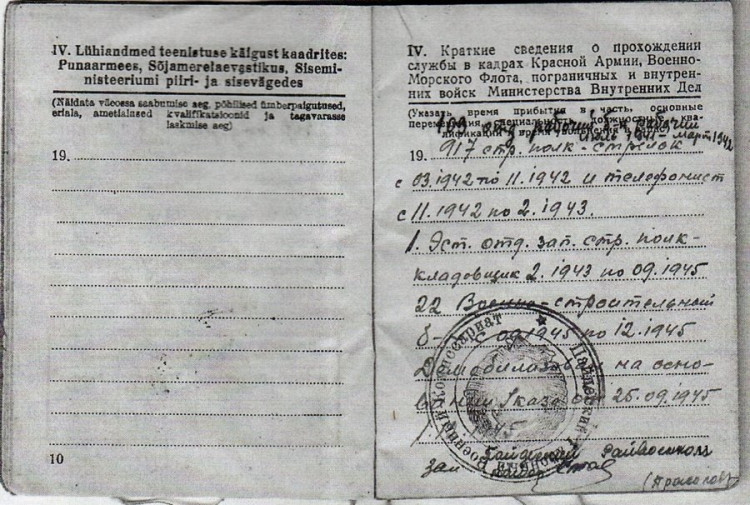 IV. Lühiandmed teenistuse käigust kaadrites:
Punaarmees, Sõjamerelaevastikus, Sisemi-
nisteeriumi piiri- ja sisevägedes
(Näidata väeossa saabumise aeg, põhilised ümberpaigutused,
eriala, ametialased kvalifikatsioonid ja tagavarasse
laskmise aeg)
19
10
IV. Краткие сведения о прохождении
службы в кадрах Красной Армии, Военно-
Морского Флота, пограничных и внутрен-
них войск Министерства Внутренних Дел
(Указать время прибытия в часть, основные
отд. рабочий
1941 - март 1942
19. 917 стр. полк - стрелок
с 03.1942 по 11.1942 и телефонист
с 11.1942 по 2.1943.
1. Эст. отд. зап. стр. полк -
кладовщик 2.1943 по 09.1945
22 Военно-строительный
б- с 09.1945 по 12.1945
Демобилизован на осно-
Указа от 25.09.1945
Военный Комиссариат
зам